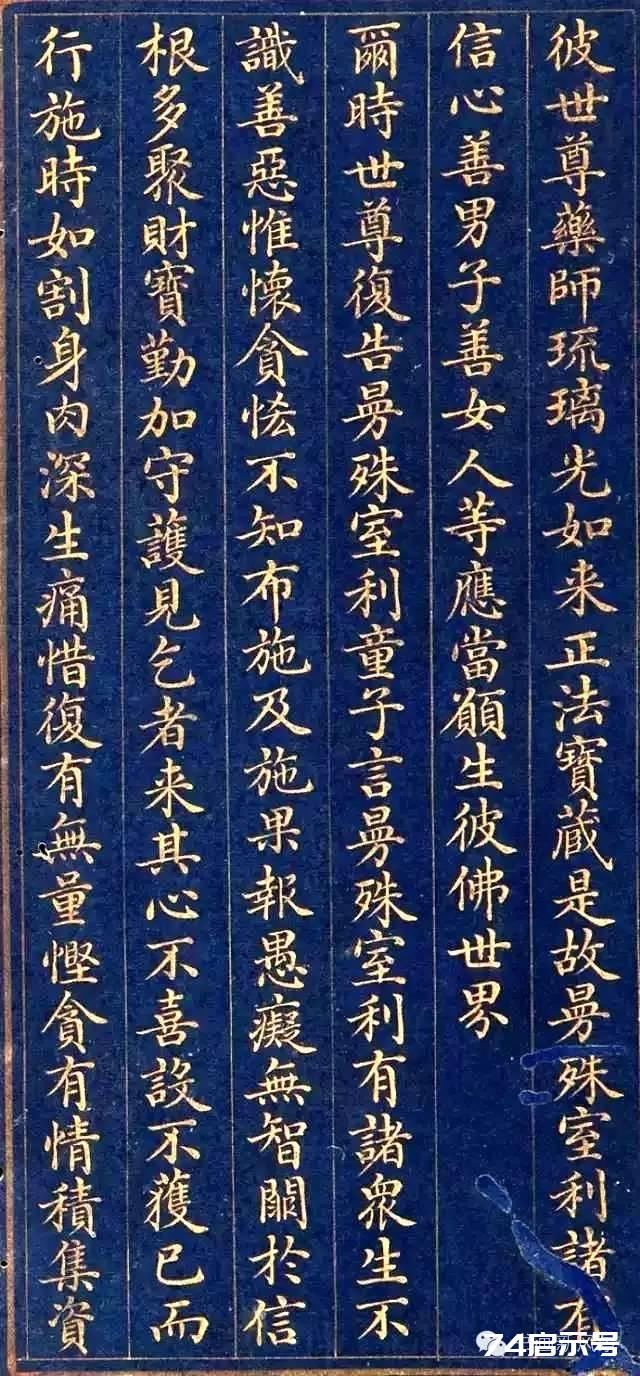 彼世尊藥師琉璃光如来正法寶蔵是故曼殊室利諸有
信心善男子善女人等應當願生彼佛世界
爾時世尊復告曼殊室利童子言曼殊室利有諸衆生不
識善惡惟懐貪恡不知布施及施果報愚癡無智闕於信
根多聚財寶勤加守護見乞者来其心不喜設不獲已而
行施時如割身肉深生痛惜復有無量慳貪有情積集資
74启示号